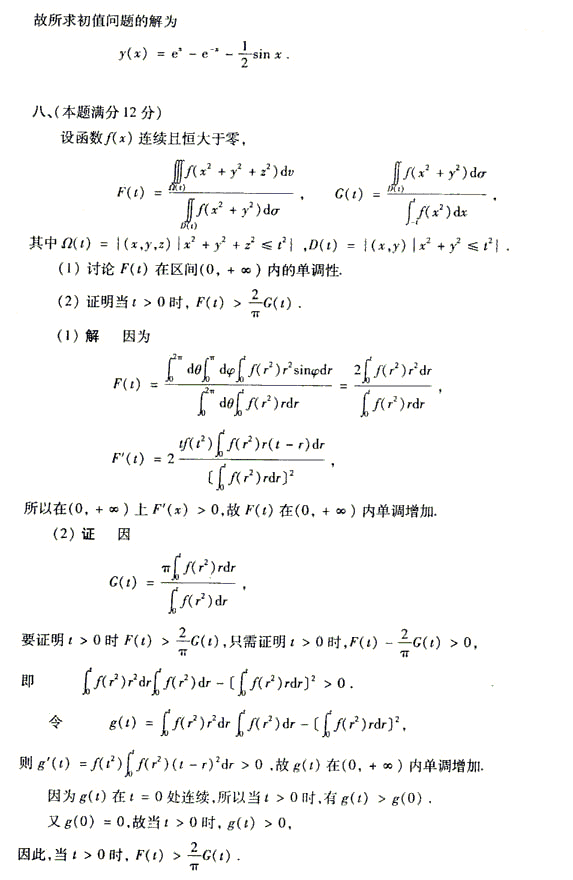 故所求初值问题的解为
y(x) = e^x - e^{-x} - \frac{1}{2} sin x .
八、(本题满分12分)
设函数f(x) 连续且恒大于零,
F(t) = \frac{\iiint_{Ω(t)} f(x² + y² + z²)dv}{\iint_{D(t)} f(x² + y²)dσ} , G(t) = \frac{\iint_{D(t)} f(x² + y²)dσ}{\int_{-t}^{t} f(x²)dx} ,
其中 Ω(t) = {(x,y,z) | x² + y² + z² ≤ t²} , D(t) = {(x,y) | x² + y² ≤ t²} .
(1) 讨论 F(t) 在区间(0, + ∞) 内的单调性.
(2) 证明当 t > 0 时, F(t) > \frac{2}{π}G(t) .
(1) 解 因为
F(t) = \frac{\int_0^{2π} dθ \int_0^{π} dφ \int_0^t f(r²)r²sinφdr}{\int_0^{2π} dθ \int_0^t f(r²)rdr} = \frac{2\int_0^t f(r²)r²dr}{\int_0^t f(r²)rdr} ,
F'(t) = 2 \frac{tf(t²)\int_0^t f(r²)r(t - r)dr}{[\int_0^t f(r²)rdr]²} ,
所以在(0, + ∞) 上 F'(x) > 0,故 F(t) 在(0, + ∞) 内单调增加.
(2) 证 因
G(t) = \frac{π\int_0^t f(r²)rdr}{\int_0^t f(r²)dr} ,
要证明 t > 0 时 F(t) > \frac{2}{π}G(t),只需证明 t > 0 时,F(t) - \frac{2}{π}G(t) > 0,
即 \int_0^t f(r²)r²dr \int_0^t f(r²)dr - [\int_0^t f(r²)rdr]² > 0 .
令 g(t) = \int_0^t f(r²)r²dr \int_0^t f(r²)dr - [\int_0^t f(r²)rdr]²,
则 g'(t) = f(t²)\int_0^t f(r²)(t - r)²dr > 0 ,故 g(t) 在(0, + ∞) 内单调增加.
因为 g(t) 在 t = 0 处连续,所以当 t > 0 时,有 g(t) > g(0) .
又 g(0) = 0,故当 t > 0 时, g(t) > 0,
因此,当 t > 0 时, F(t) > \frac{2}{π}G(t) .